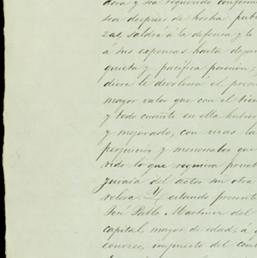 dora y sea requerido conforme
sea despues de hecha publ
zas, saldrá á la defensa y lo
á sus expensas hasta dejar
quieta y pacífica posesion, y
diere le devolverá el precio
mayor valor que con el tiem
y todo cuanto en ella hubier
y mejorado, con mas la
perjuicios y menoscabos que
vido lo que requiera prueb
juicio del actor sin otra
releva. Y estando presente
José Pablo Martinez del
capital, mayor de edad, á q
conozco, impuesto del cont